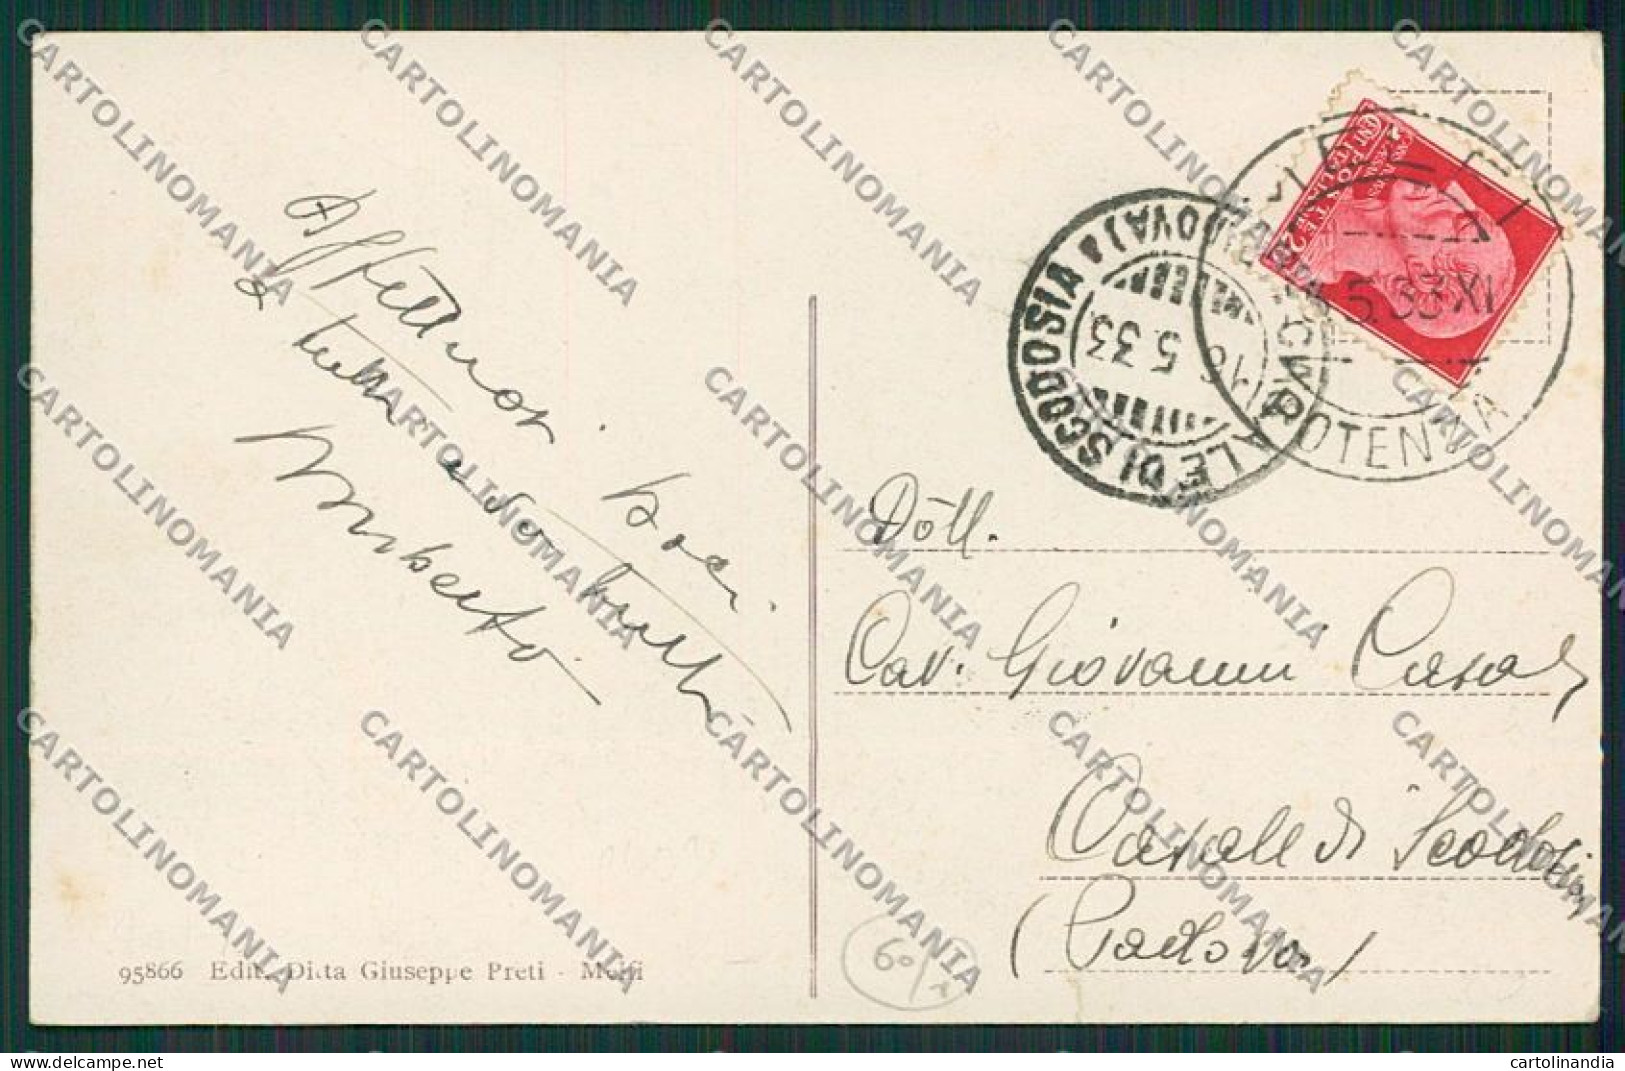 Affettuosi baci
a tutti
Umberto
95866 Edit. Ditta Giuseppe Preti - Melfi
POSTE ITALIANE
CENT.
MELFI
POTENZA
5.33 XI
CASALE DI SCODOSIA
(PADOVA)
16 5.33
Dott.
Cav. Giovanni
Casale di Scodosia
(Padova)
60
CARTOLINOMANIA
delcampe.net
cartolinandia